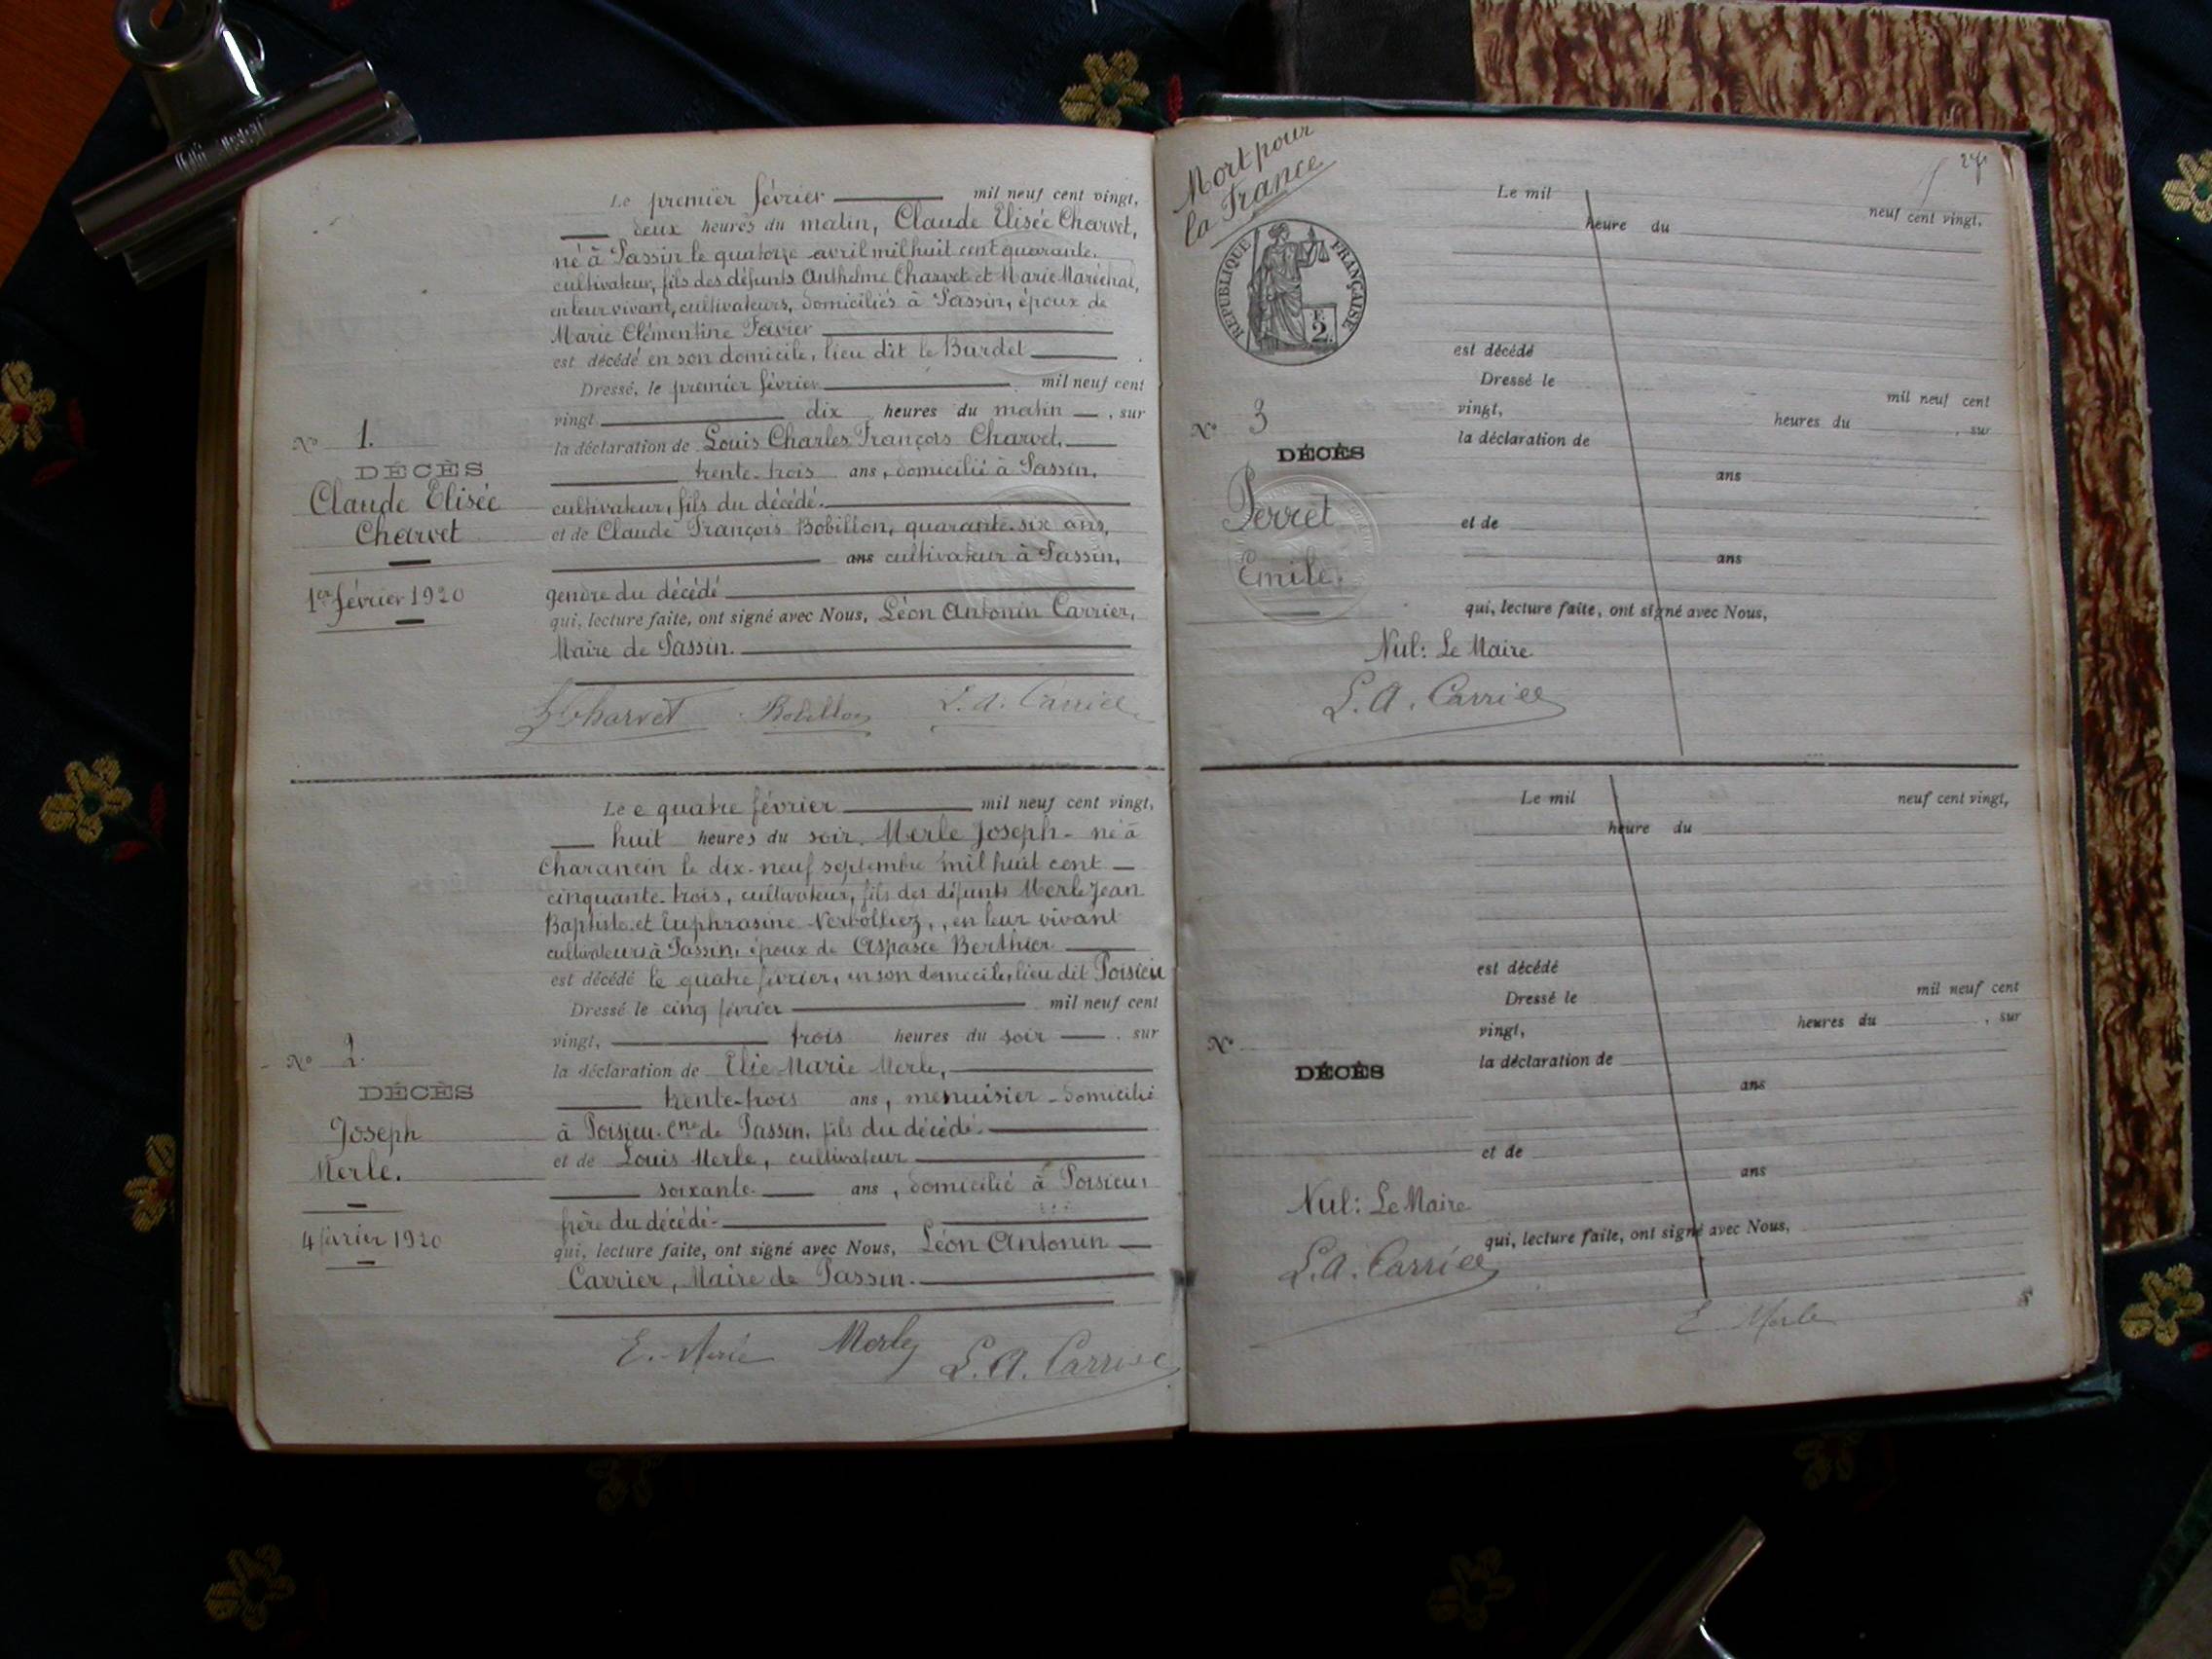 Le premier février mil neuf cent vingt,
deux heures du matin, Claude Elisée Charvet,
né à Passin le quatorze avril mil huit cent quarante,
cultivateur, fils des défunts Anthelme Charvet et Marie Maréchal,
en leur vivant, cultivateurs, domiciliés à Passin, époux de
Marie Clémentine
est décédé en son domicile, lieu dit le Burdet
Dressé, le premier février mil neuf cent
vingt dix heures du matin, sur
la déclaration de Louis Charles François Charvet,
trente-trois ans, domicilié à Passin,
cultivateur, fils du décédé.
et de Claude François Bobillon, quarante-six ans,
ans cultivateur à Passin,
gendre du décédé
qui, lecture faite, ont signé avec Nous, Léon Antonin Carrier,
Maire de Passin.
Charvet Bobillon L. A. Carrier
N° 1.
DÉCÈS
Claude Elisée
Charvet
1er février 1920
Le e quatre février mil neuf cent vingt,
huit heures du soir, Merle Joseph - né à
Charancin le dix-neuf septembre mil huit cent
cinquante-trois, cultivateur, fils des défunts Merle Jean
Baptiste et Euphrasine , en leur vivant
cultivateurs à Passin, époux de Aspasie Berthier
est décédé le quatre février, en son domicile, lieu dit Poisieu
Dressé le cinq février mil neuf cent
vingt, trois heures du soir, sur
la déclaration de Elie Marie Merle,
trente-trois ans, menuisier - domicilié
à Poisieu Cne de Passin, fils du décédé.
et de Louis Merle, cultivateur
soixante ans, domicilié à Poisieu,
frère du décédé
qui, lecture faite, ont signé avec Nous, Léon Antonin
Carrier, Maire de Passin.
E. Merle Merle L. A. Carrier
N° 2.
DÉCÈS
Joseph
Merle.
4 février 1920
Mort pour
la France
RÉPUBLIQUE FRANÇAISE
2
27
Le mil neuf cent vingt,
heure du
est décédé
Dressé le mil neuf cent
vingt, heures du , sur
la déclaration de
ans
et de
ans
qui, lecture faite, ont signé avec Nous,
N° 3
DÉCÈS
Perret
Emile
Nul: Le Maire
L. A. Carrier
Le mil neuf cent vingt,
heure du
est décédé
Dressé le mil neuf cent
vingt, heures du , sur
la déclaration de
ans
et de
ans
N°
DÉCÈS
Nul: Le Maire
qui, lecture faite, ont signé avec Nous,
L. A. Carrier
E Merle